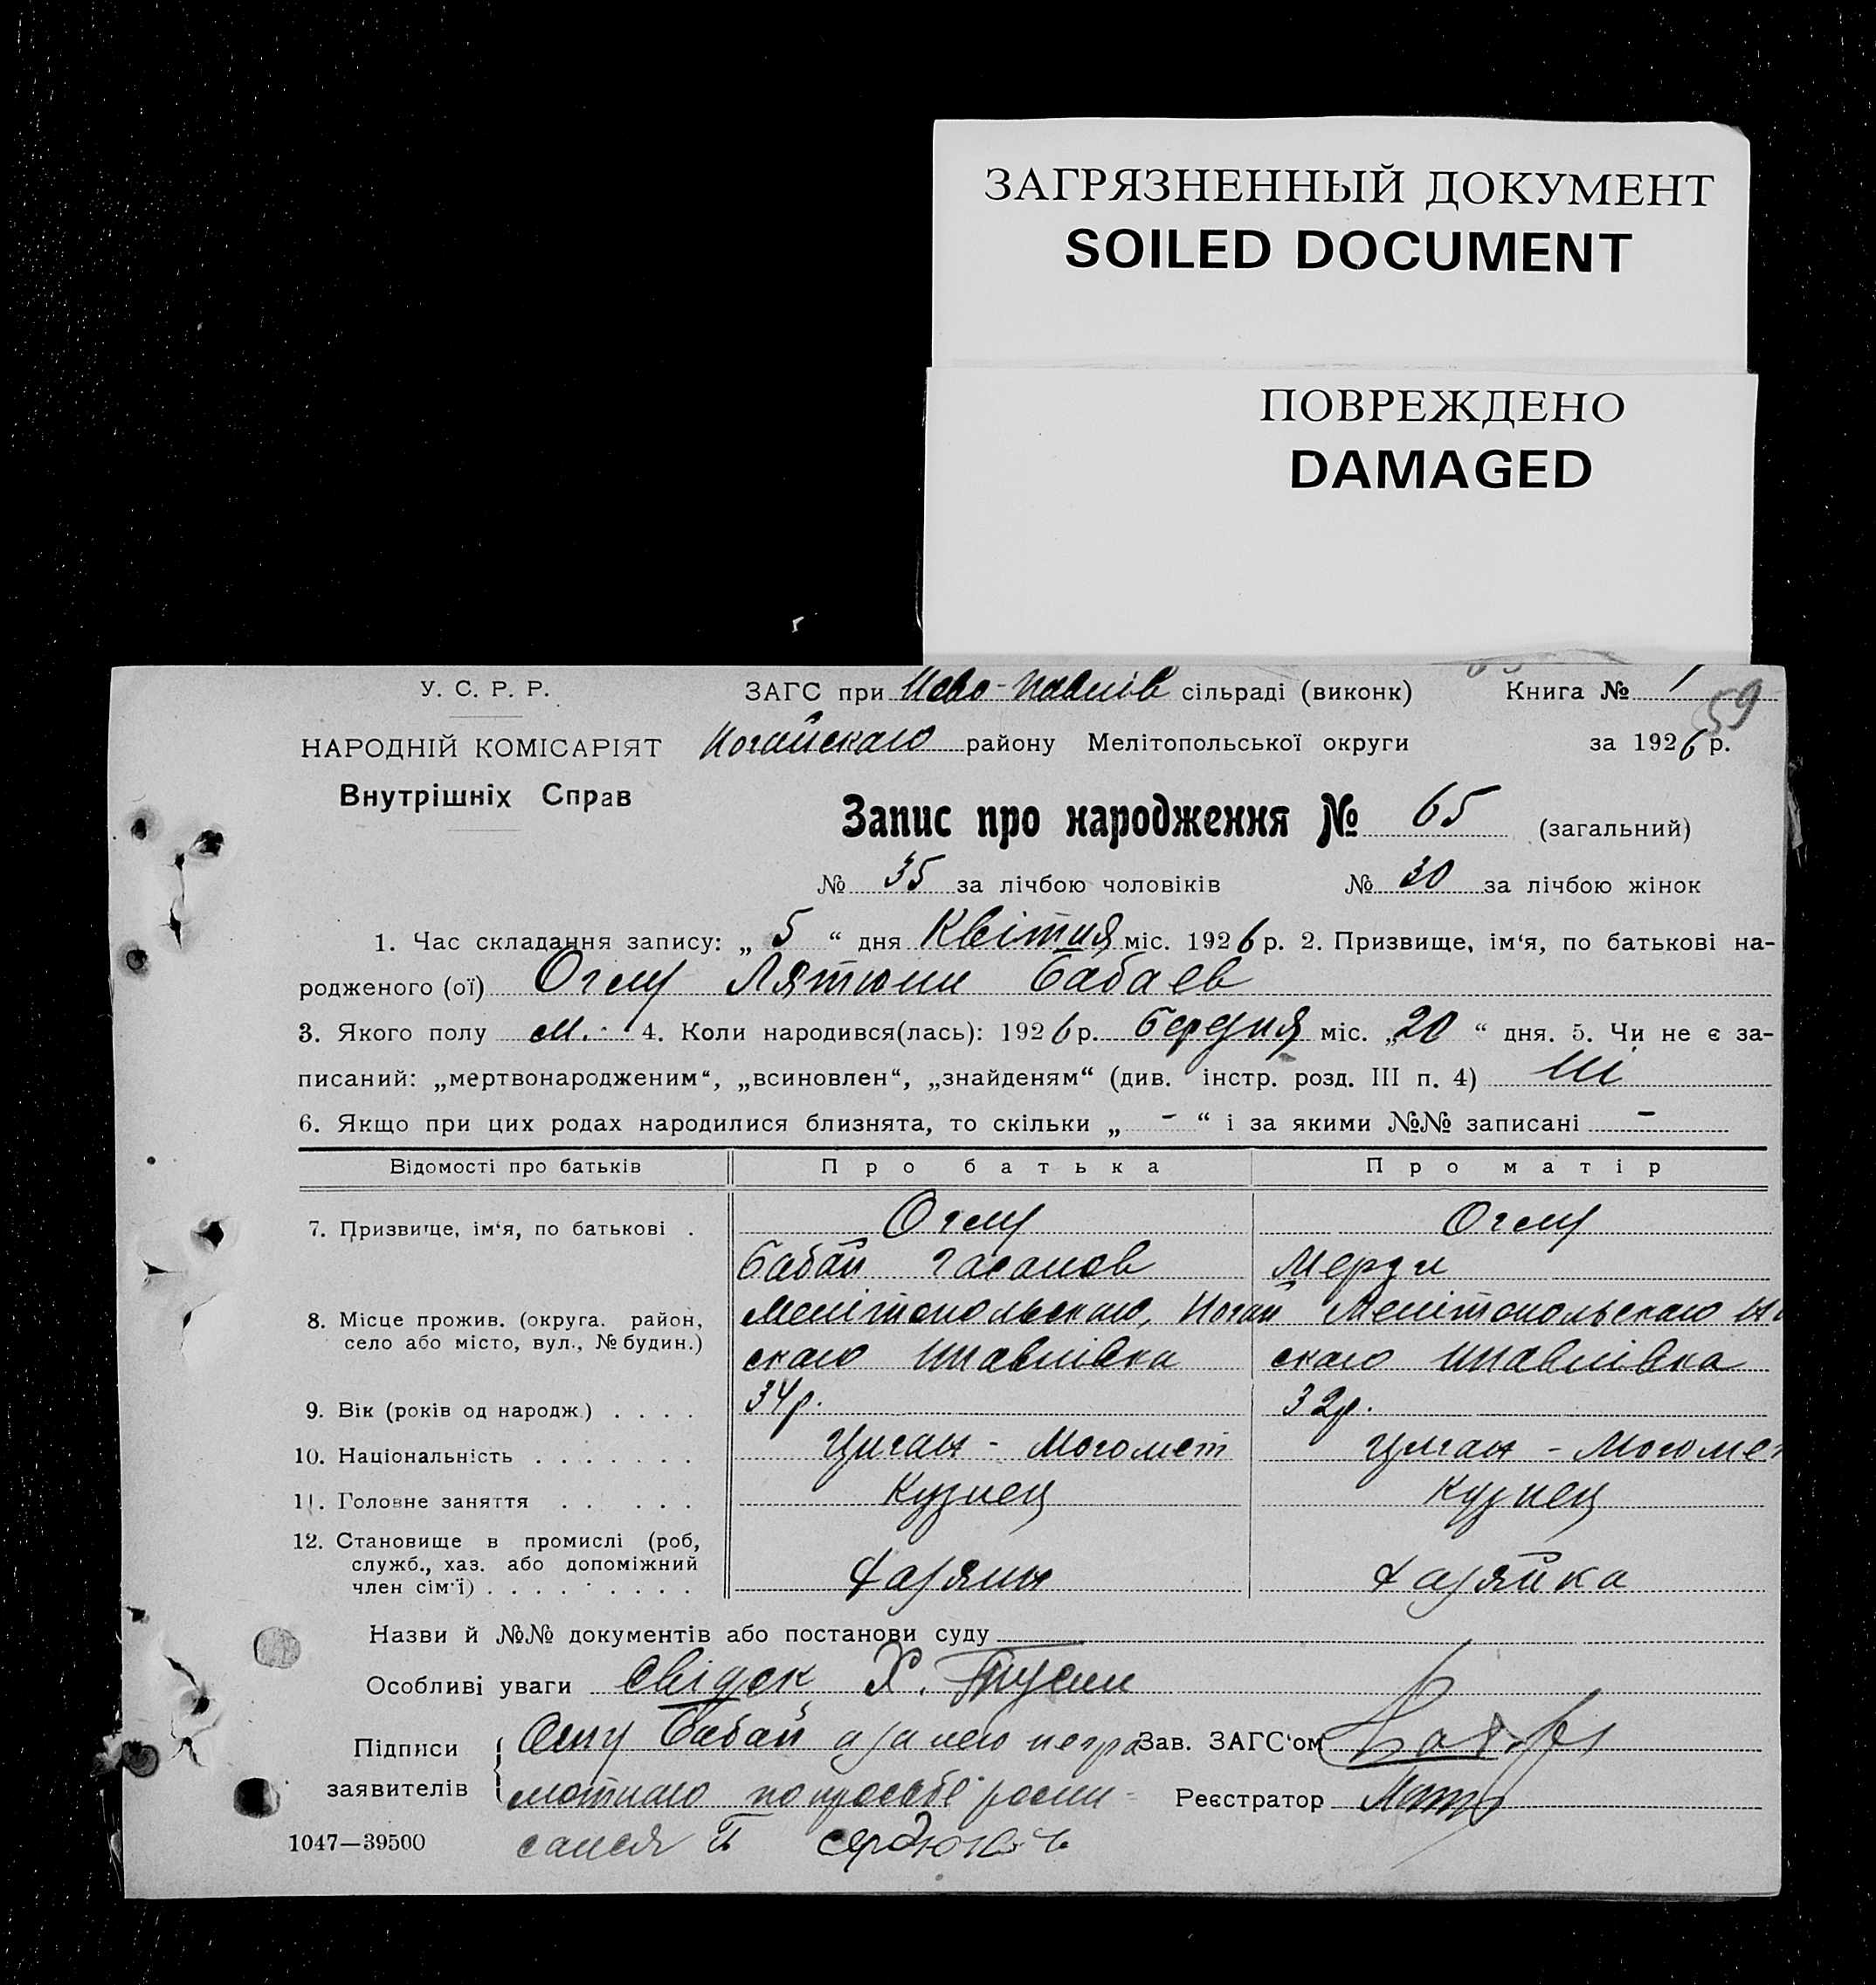 ЗАГРЯЗНЕННЫЙ ДОКУМЕНТ
SOILED DOCUMENT
ПОВРЕЖДЕНО
DAMAGED
У. С. Р. Р. ЗАГС при Ново-павлів сільраді (виконк) Книга № 1
59
НАРОДНІЙ КОМІСАРІЯТ Ногайскаго району Мелітопольської округи за 1926 р.
Внутрішніх Справ
Запис про народження № 65 (загальний)
№ 35 за лічбою чоловіків № 30 за лічбою жінок
1. Час складання запису: „ 5 “ дня Квітня міс. 1926 р. 2. Призвище, ім‘я, по батькові на-
родженого (ої) Оглу Бабаев
3. Якого полу м. 4. Коли народився(лась): 1926 р. березня міс. „20 “ дня. 5. Чи не є за-
писаний: „мертвонародженим“, „всиновлен“, „знайденям“ (див. інстр. розд. III п. 4) Ні
6. Якщо при цих родах народилися близнята, то скільки „ - “ і за якими №№ записані -
Відомості про батьків Про батька Про матір
7. Призвище, ім‘я, по батькові . Оглу Оглу
Бабай Гасанов Мерди
8. Місце прожив. (округа. район, Мелітопольскаго, Ногай Мелітопольскаго
село або місто, вул., № будин.) скаго Нпавлівка скаго Нпавлівка
9. Вік (років од народж.) . . . . 34р. 32р.
10. Національність . . . . . . . Циган - Могомет Циган - Могомет
11. Головне заняття . . . . . Кузнец Кузнец
12. Становище в промислі (роб,
служб., хаз. або допоміжний
член сім‘ї) . . . . . . . . . Хазяин Хазяйка
Назви й №№ документів або постанови суду
Особливі уваги Свідок Х.
Підписи Оглу Бабай а за него негра Зав. ЗАГС‘ом
заявителів мотнаго по просьбе роспи- Реєстратор
1047—39500 сался П Сердюков